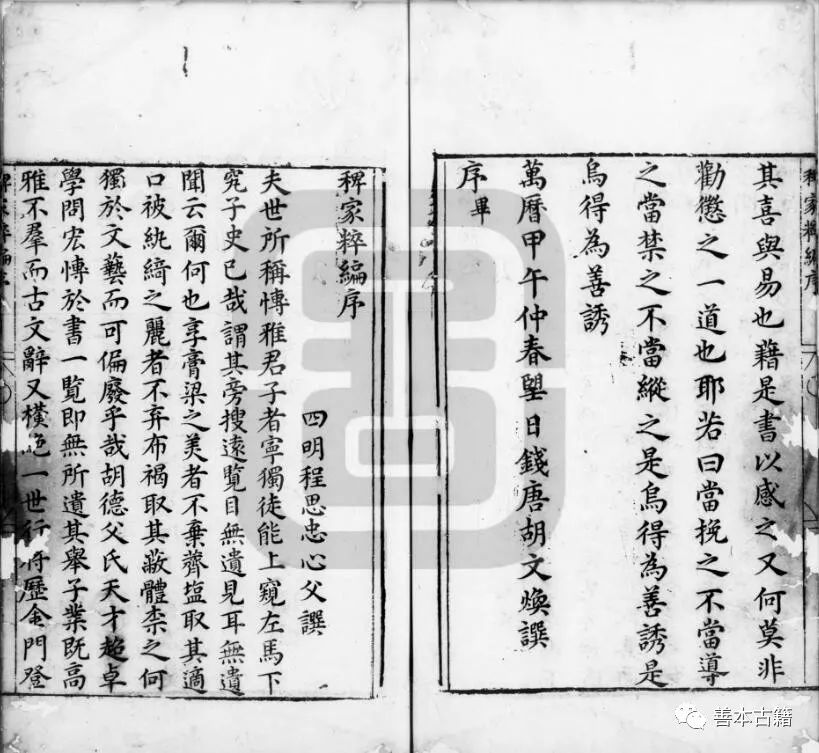 稗家粹編序
其喜與易也藉是書以感之又何莫非
勸懲之一道也耶若曰當挽之不當導
之當禁之不當縱之是烏得為善誘是
烏得為善誘
萬曆甲午仲春朢日錢唐胡文煥譔
序畢
稗家粹編序
四明程思忠心父譔
夫世所稱博雅君子者寧獨徒能上窺左馬下
究子史已哉謂其旁搜遠覽目無遺見耳無遺
聞云爾何也享膏梁之美者不棄薺塩取其適
口被紈綺之麗者不弃布褐取其蔽體柰之何
獨於文藝而可偏廢乎哉胡德父氏天才超卓
學問宏博於書一覽即無所遺其舉子業既高
雅不羣而古文辭又橫絕一世行將歷金門登
稗家粹編序
善本古籍